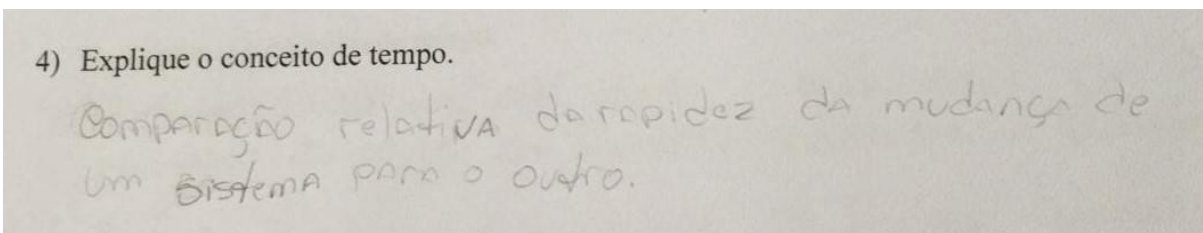 4) Explique o conceito de tempo.
Comparação relativa da rapidez da mudança de
um sistema para o outro.